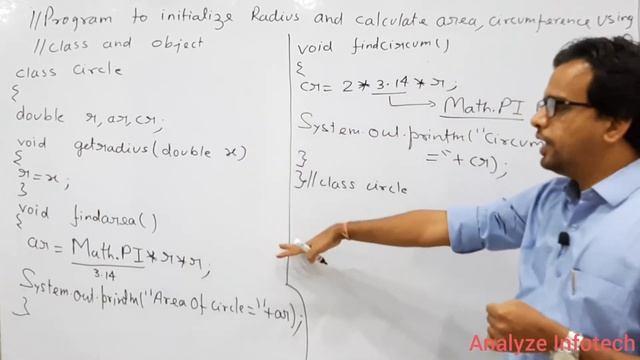 //Program to initialize Radius and calculate area, circumference using
//class and object
class circle
{
double r, ar, cr;
void getradius(double x)
{
r = x;
}
void findarea()
{
ar = Math.PI * r * r;
3.14
System.out.println("Area Of circle=" + ar);
}
void findcircum()
{
cr = 2 * 3.14 * r;
Math.PI
System.out.println("Circum
=" + cr);
}
}//class circle
Analyze Infotech